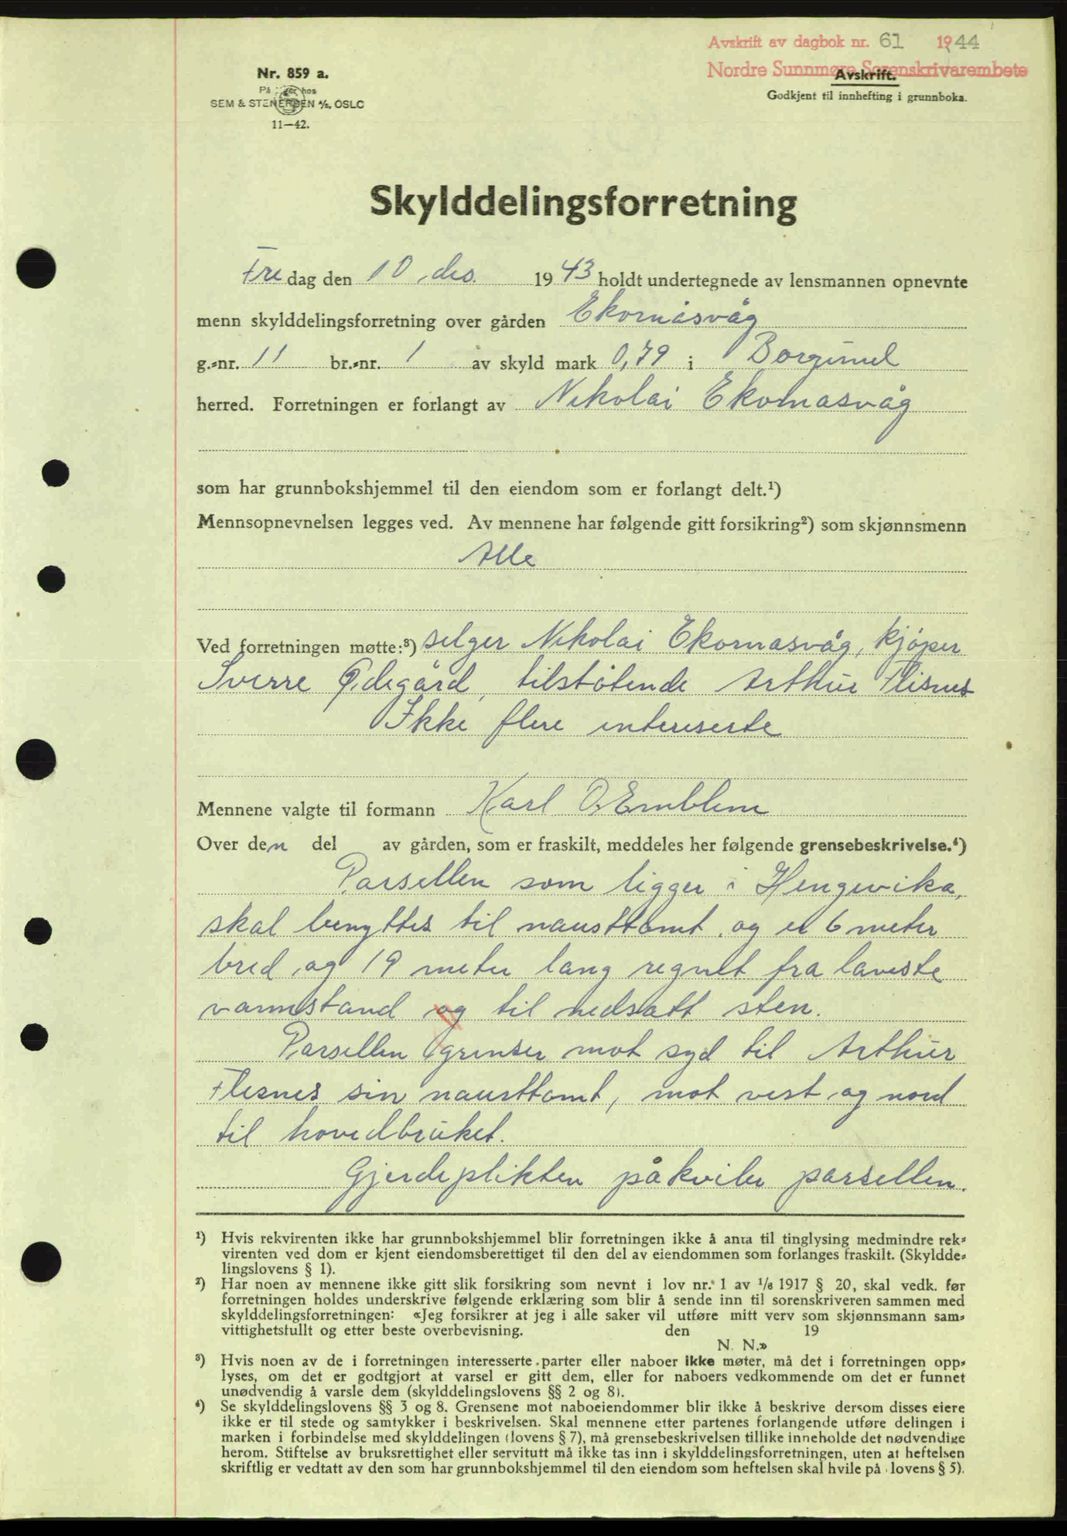 Avskrift av dagbok nr. 61 1944
Nordre Sunnmøre Sorenskrivarembete
Avskrift.
Godkjent til innhefting i grunnboka.
Nr. 859 a.
På lager hos
SEM & STENERSEN A/S, OSLO
11—42.
Skylddelingsforretning
Fredag den 10. des. 1943 holdt undertegnede av lensmannen opnevnte
menn skylddelingsforretning over gården Ekornåsvåg
g.-nr. 11 br.-nr. 1 av skyld mark 0,79 i Borgund
herred. Forretningen er forlangt av Nikolai Ekornasvåg
som har grunnbokshjemmel til den eiendom som er forlangt delt.¹)
Mennsopnevnelsen legges ved. Av mennene har følgende gitt forsikring²) som skjønnsmenn
Alle
Ved forretningen møtte:³) selger Nikolai Ekornasvåg, kjøper
Sverre Ødegård, tilstøtende Arthur Flisnes
Ikke flere intereserte
Mennene valgte til formann Karl O. Emblem
Over den del av gården, som er fraskilt, meddeles her følgende grensebeskrivelse.⁴)
Parsellen som ligger i Hengevika,
skal benyttes til nausttomt, og er 6 meter
bred og 19 meter lang regnet fra laveste
vannstand og til nedsatt sten.
Parsellen grenser mot syd til Arthur
Flesnes sin nausttomt, mot vest og nord
til hovedbruket.
Gjerdeplikten påkviler parsellen.
¹) Hvis rekvirenten ikke har grunnbokshjemmel blir forretningen ikke å anta til tinglysing medmindre rek-
virenten ved dom er kjent eiendomsberettiget til den del av eiendommen som forlanges fraskilt. (Skyldde-
lingslovens § 1).
²) Har noen av mennene ikke gitt slik forsikring som nevnt i lov nr. 1 av 1/6 1917 § 20, skal vedk. før
forretningen holdes underskrive følgende erklæring som blir å sende inn til sorenskriveren sammen med
skylddelingsforretningen: «Jeg forsikrer at jeg i alle saker vil utføre mitt verv som skjønnsmann sam-
vittighetsfullt og etter beste overbevisning. den 19
N. N.»
³) Hvis noen av de i forretningen interesserte parter eller naboer ikke møter, må det i forretningen opp-
lyses, om det er godtgjort at varsel er gitt dem, eller for naboers vedkommende om det er funnet
unødvendig å varsle dem (skylddelingslovens §§ 2 og 8).
⁴) Se skylddelingslovens §§ 3 og 8. Grensene mot naboeiendommer blir ikke å beskrive dersom disses eiere
ikke er til stede og samtykker i beskrivelsen. Skal mennene etter partenes forlangende utføre delingen i
marken i forbindelse med skylddelingen (lovens § 7), må grensebeskrivelsen tillike inneholde det nødvendige
herom. Stiftelse av bruksrettighet eller servitutt må ikke tas inn i skylddelingsforretningen, uten at heftelsen
skriftlig er vedtatt av den som har grunnbokshjemmel til den eiendom som heftelsen skal hvile på lovens § 5).